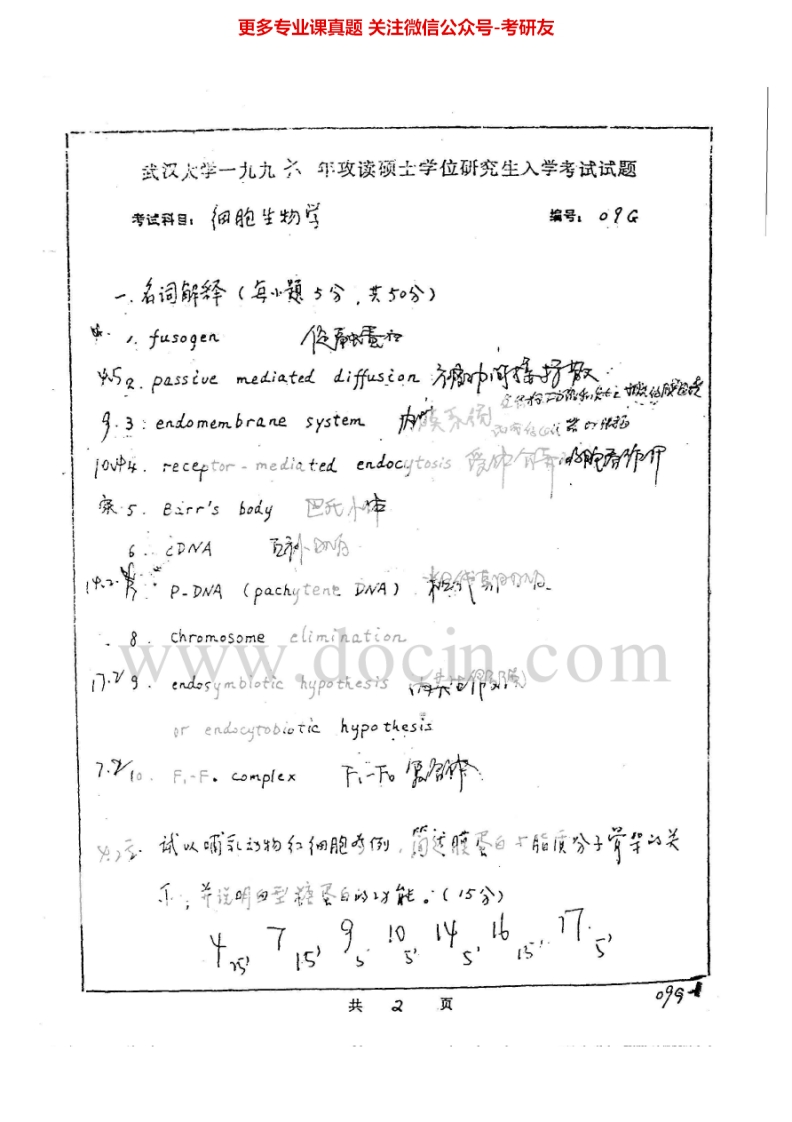 更多专业课真题 关注微信公众号-考研友
武汉大学一九九六 年攻读硕士学位研究生入学考试试题
考试科目: 细胞生物学 编号: 09G
一. 名词解释 (每小题5分, 共50分)
1. fusogen 促融蛋白
4.5 2. passive mediated diffusion
9. 3. endomembrane system 内膜系统
4. receptor-mediated endocytosis 受体介导的胞吞作用
5. Barr's body 巴氏小体
6. cDNA 互补DNA
P-DNA (pachytene DNA) 粗线期DNA
8. chromosome elimination
www.docin.com
17.2 9. endosymbiotic hypothesis
or endocytobiotic hypothesis
7.2 10. F₁-F₀ complex F₁-F₀ 复合体
二. 试以哺乳动物红细胞为例, 简述膜蛋白与脂质分子骨架的关
系, 并说明血型糖蛋白的功能。(15分)
4 7 9 10 14 16 17
25' 15' 5 5' 5' 15' 5'
共 2 页
09G-1